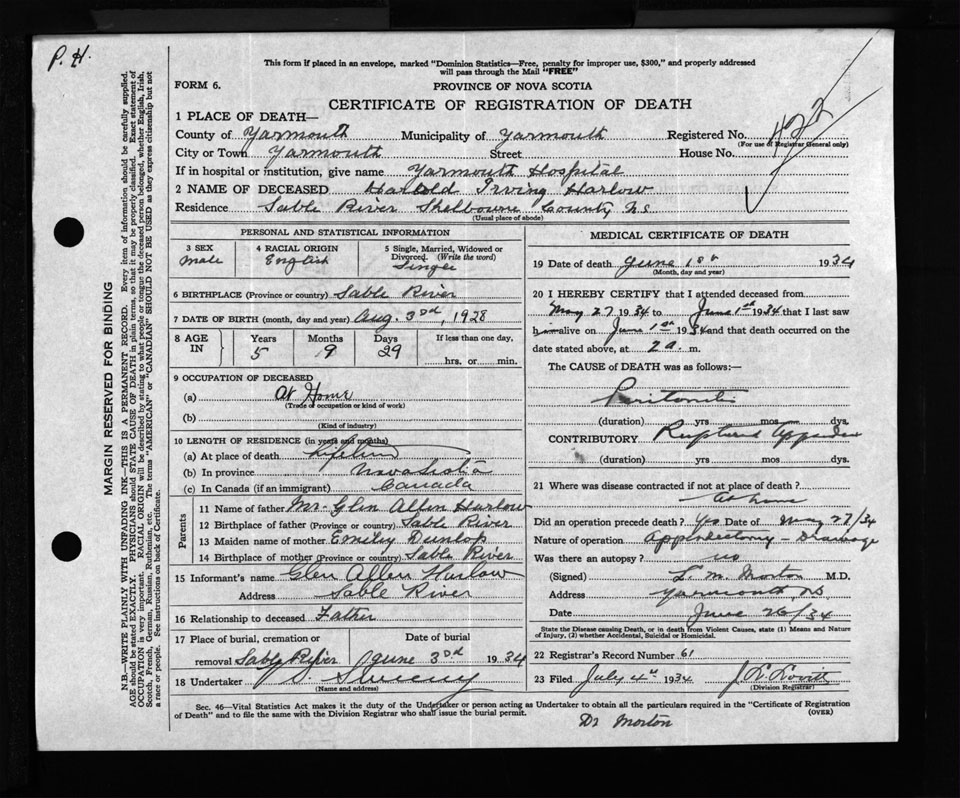 P. H.
This form if placed in an envelope, marked "Dominion Statistics—Free, penalty for improper use, $300," and properly addressed
will pass through the Mail "FREE"
FORM 6.
PROVINCE OF NOVA SCOTIA
CERTIFICATE OF REGISTRATION OF DEATH
1 PLACE OF DEATH—
County of Yarmouth Municipality of Yarmouth Registered No. 422
(For use of Registrar General only)
City or Town Yarmouth Street House No.
If in hospital or institution, give name Yarmouth Hospital
2 NAME OF DECEASED Harold Irving Harlow
Residence Sable River Shelbourne County N.S
(Usual place of abode)
PERSONAL AND STATISTICAL INFORMATION
3 SEX
male
4 RACIAL ORIGIN
English
5 Single, Married, Widowed or
Divorced. (Write the word)
Single
6 BIRTHPLACE (Province or country) Sable River
7 DATE OF BIRTH (month, day and year) Aug. 3rd, 1928
8 AGE IN
Years Months Days If less than one day,
5 9 29 hrs. or min.
9 OCCUPATION OF DECEASED
(a) At Home
(Trade or occupation or kind of work)
(b)
(Kind of industry)
10 LENGTH OF RESIDENCE (in years and months)
(a) At place of death Lifetime
(b) In province Nova Scotia
(c) In Canada (if an immigrant) Canada
Parents
11 Name of father Mr. Glen Allen Harlow
12 Birthplace of father (Province or country) Sable River
13 Maiden name of mother Emily Dunlop
14 Birthplace of mother (Province or country) Sable River
15 Informant's name Glen Allen Harlow
Address Sable River
16 Relationship to deceased Father
17 Place of burial, cremation or Date of burial
removal Sable River June 3rd 1934
18 Undertaker Sweeny
(Name and address)
MEDICAL CERTIFICATE OF DEATH
19 Date of death June 1st 1934
(Month, day and year)
20 I HEREBY CERTIFY that I attended deceased from
May 27 1934 to June 1st 1934 that I last saw
him alive on June 1st 1934 and that death occurred on the
date stated above, at 2 a. m.
The CAUSE of DEATH was as follows:
Peritonitis
(duration) yrs mos dys.
CONTRIBUTORY Ruptured Appendix
(duration) yrs mos dys.
21 Where was disease contracted if not at place of death?
At home
Did an operation precede death? Yes Date of May 27/34
Nature of operation Appendectomy - Drainage
Was there an autopsy? no
(Signed) L. M. Morton M.D.
Address Yarmouth, N.S
Date June 26/34
State the Disease causing Death, or in death from Violent Causes, state (1) Means and Nature
of Injury, (2) whether Accidental, Suicidal or Homicidal.
22 Registrar's Record Number 61
23 Filed July 4th 1934
(Division Registrar)
Sec. 46—Vital Statistics Act makes it the duty of the Undertaker or person acting as Undertaker to obtain all the particulars required in the "Certificate of Registration
of Death" and to file the same with the Division Registrar who shall issue the burial permit.
(OVER)
Dr Morton
MARGIN RESERVED FOR BINDING
N.B.—WRITE PLAINLY WITH UNFADING INK—THIS IS A PERMANENT RECORD. Every item of information should be carefully supplied.
AGE should be stated EXACTLY. PHYSICIANS should STATE CAUSE OF DEATH in plain terms, so that it may be properly classified. Exact statement of
OCCUPATION is very important. RACIAL ORIGIN will be described by stating to what people or tongue the deceased person belonged, whether English, Irish,
Scotch, French, German, Russian, Ruthenian, etc. The terms "AMERICAN" or "CANADIAN" SHOULD NOT BE USED as they express citizenship but not
a race or people. See instructions on back of Certificate.